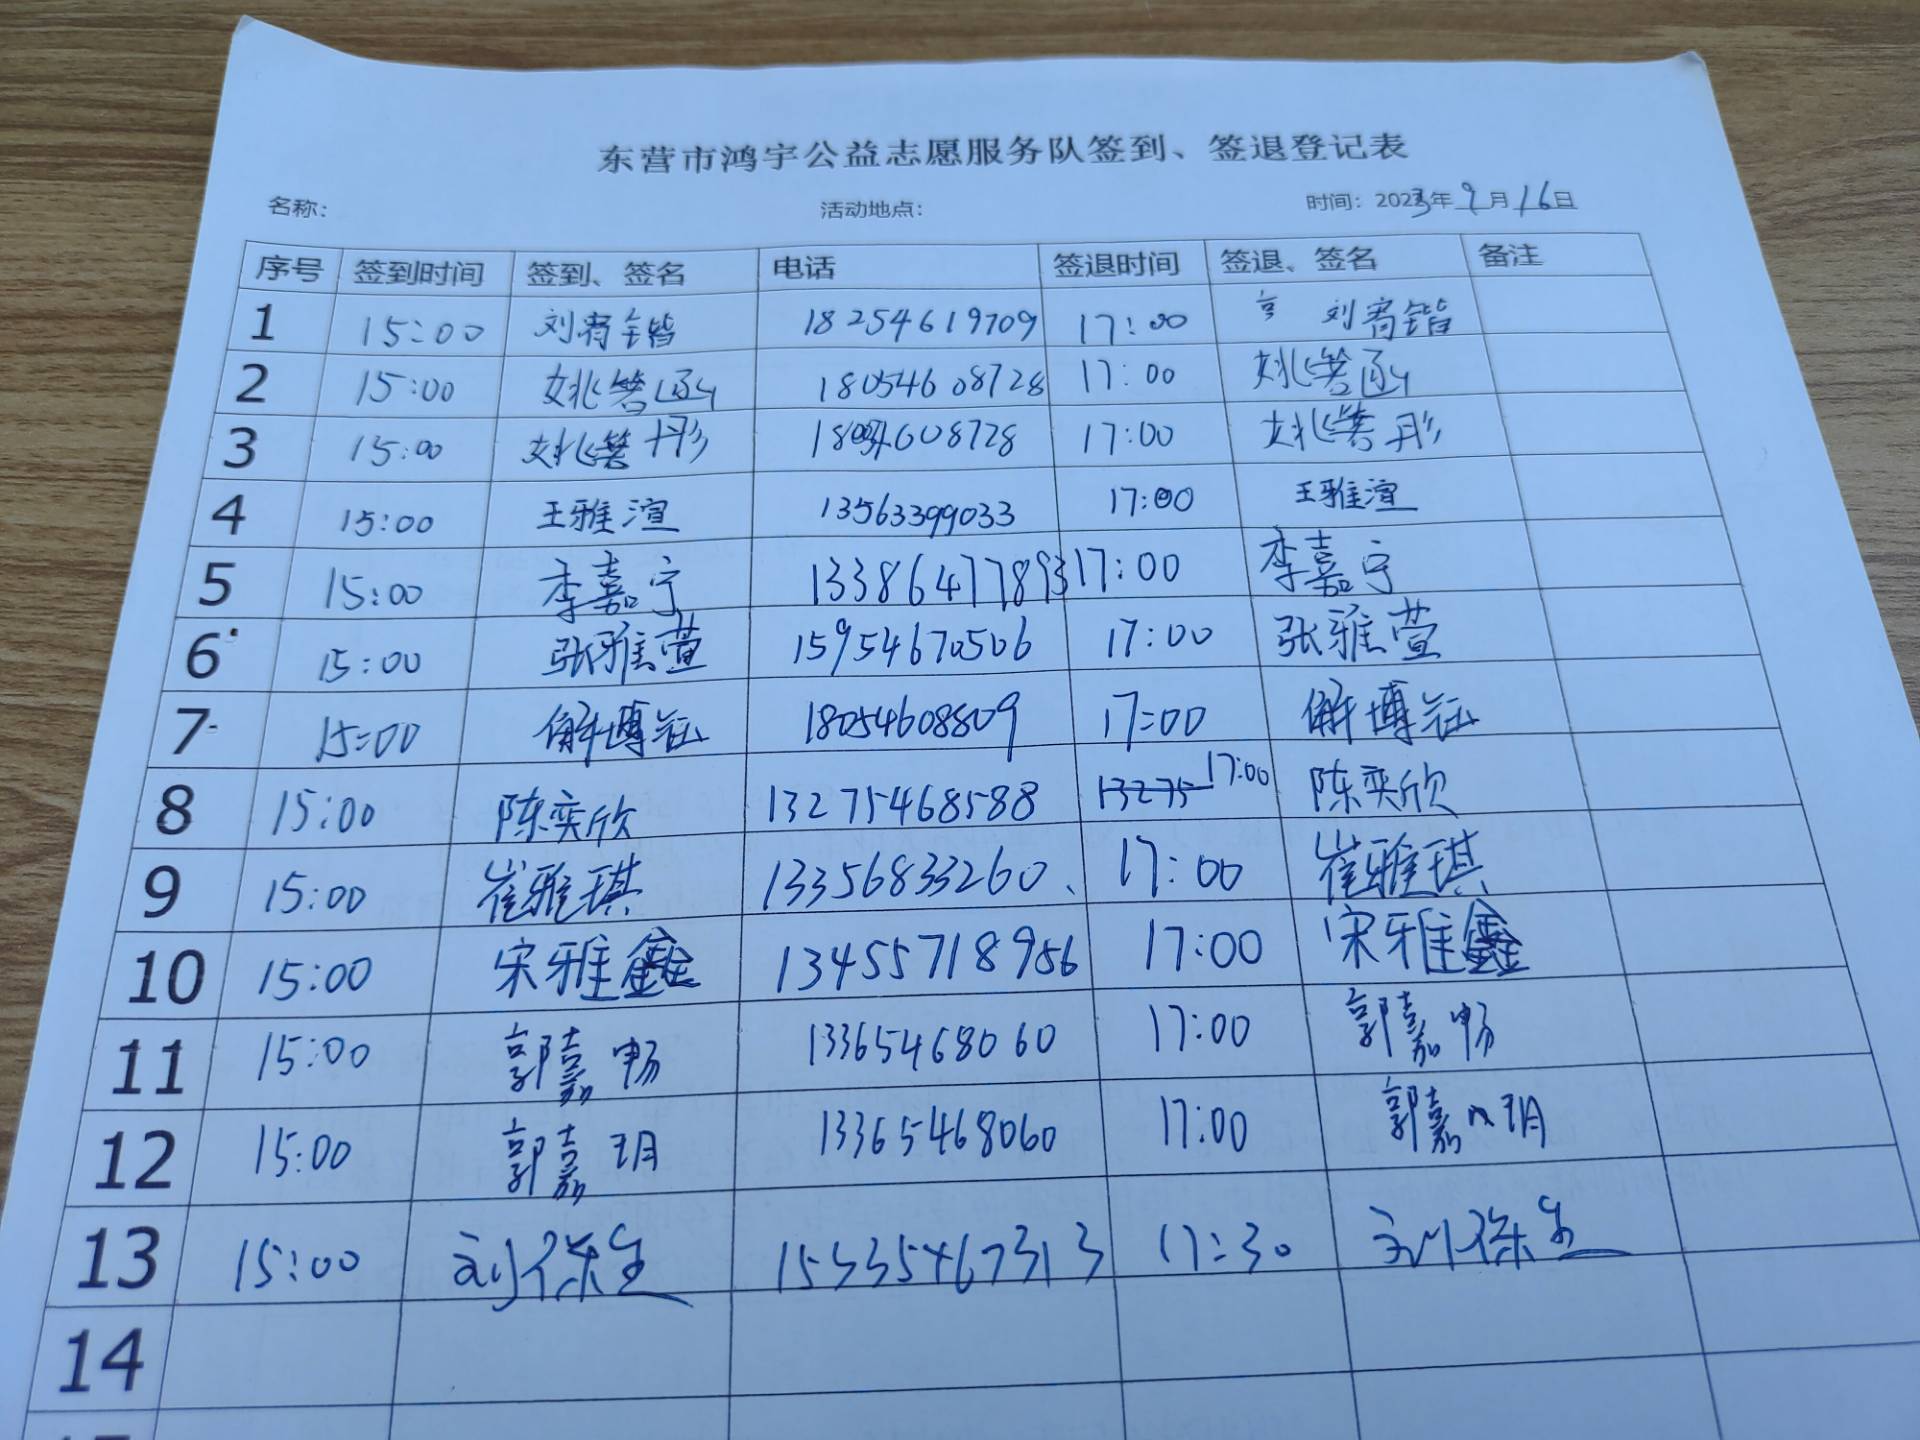 东营市鸿宇公益志愿服务队签到、签退登记表
名称: 活动地点: 时间: 2023年9月16日
序号 签到时间 签到、签名 电话 签退时间 签退、签名 备注
1 15:00 刘 18254619709 17:00 刘
2 15:00 姚箬函 18054608728 17:00 姚箬函
3 15:00 姚箬彤 608728 17:00 姚箬彤
4 15:00 王雅渲 13563399033 17:00 王雅渲
5 15:00 李嘉宁 13386477893 17:00 李嘉宁
6 15:00 张雅萱 15954670506 17:00 张雅萱
7 15:00 解博钰 18054608809 17:00 解博钰
8 15:00 陈奕欣 13275468588 13275 17:00 陈奕欣
9 15:00 崔雅琪 13356833260、 17:00 崔雅琪
10 15:00 宋雅鑫 13455718956 17:00 宋雅鑫
11 15:00 郭嘉畅 13365468060 17:00 郭嘉畅
12 15:00 郭嘉玥 13365468060 17:00 郭嘉玥
13 15:00 刘保生 15335467313 17:30 刘保生
14